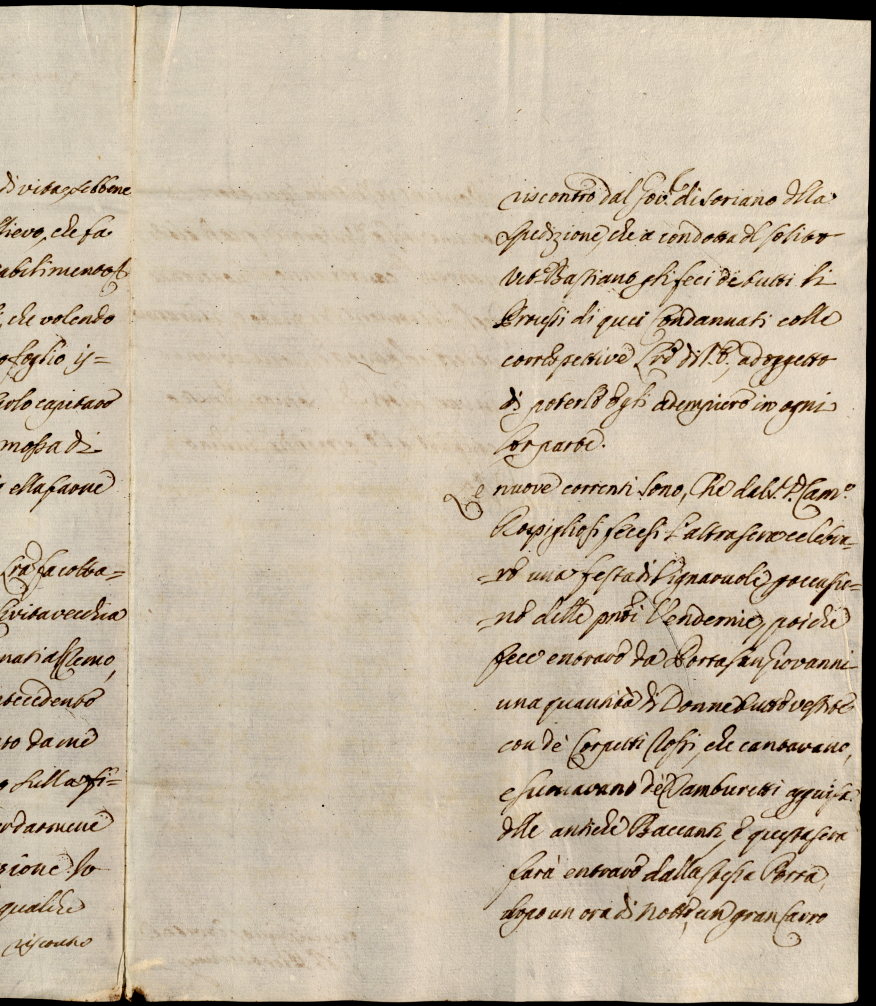 di vita, e sebbene
llievo, che fa
abilimento
, che volendo
foglio is=
capitare
mossa di
ella faone
facolta=
Civitavecchia
natiassemo,
ntecedente
to da me
sulla fi=
ardarmene
zione lo
qualche
riscontro
riscontro dal Gov.e di Soriano della
spedizione, che a condotta del solito
Vet. Bastiano gli feci de tutti li
Processi di quei Condannati colle
correspettive di V.E., ad oggetto
di poterlo egli adempiere in ogni
lor parte.
Le nuove correnti sono, Che dal S.r P. Cam.o
Rospigliosi fecesi l'altra sera celebra=
=re una festa di Vignaruole, p occasio=
=ne delle pnti Vendemie, poiche
fece entrare da Porta San Giovanni
una quantità di Donne tutte vestite
con de' Corpetti rossi, che cantavano,
e suonavano de' Tamburetti agguisa
delle antiche Baccanti, E questa sera
farà entrare dalla stessa Porta,
dopo un ora di notte, un gran Carro